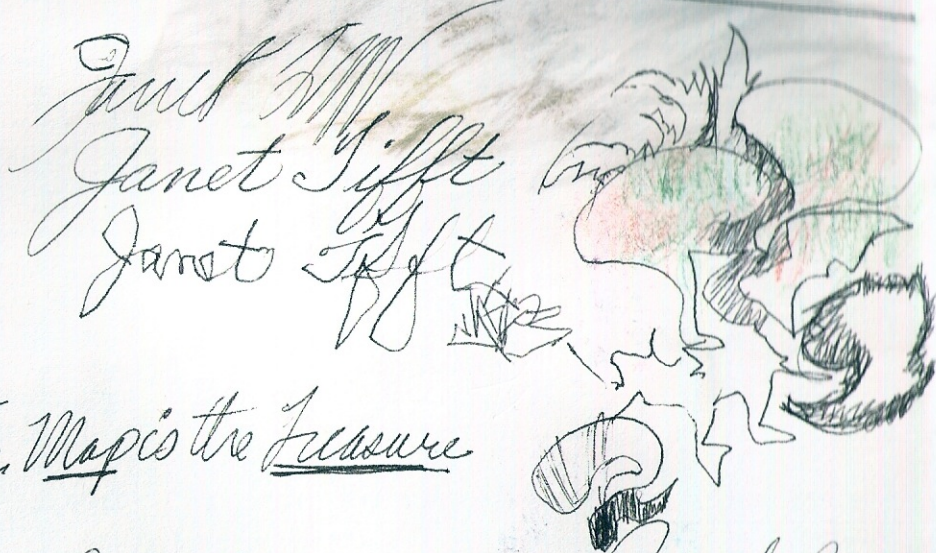 Janet
Janet Tifft
Janet Tifft
Map is the Treasure